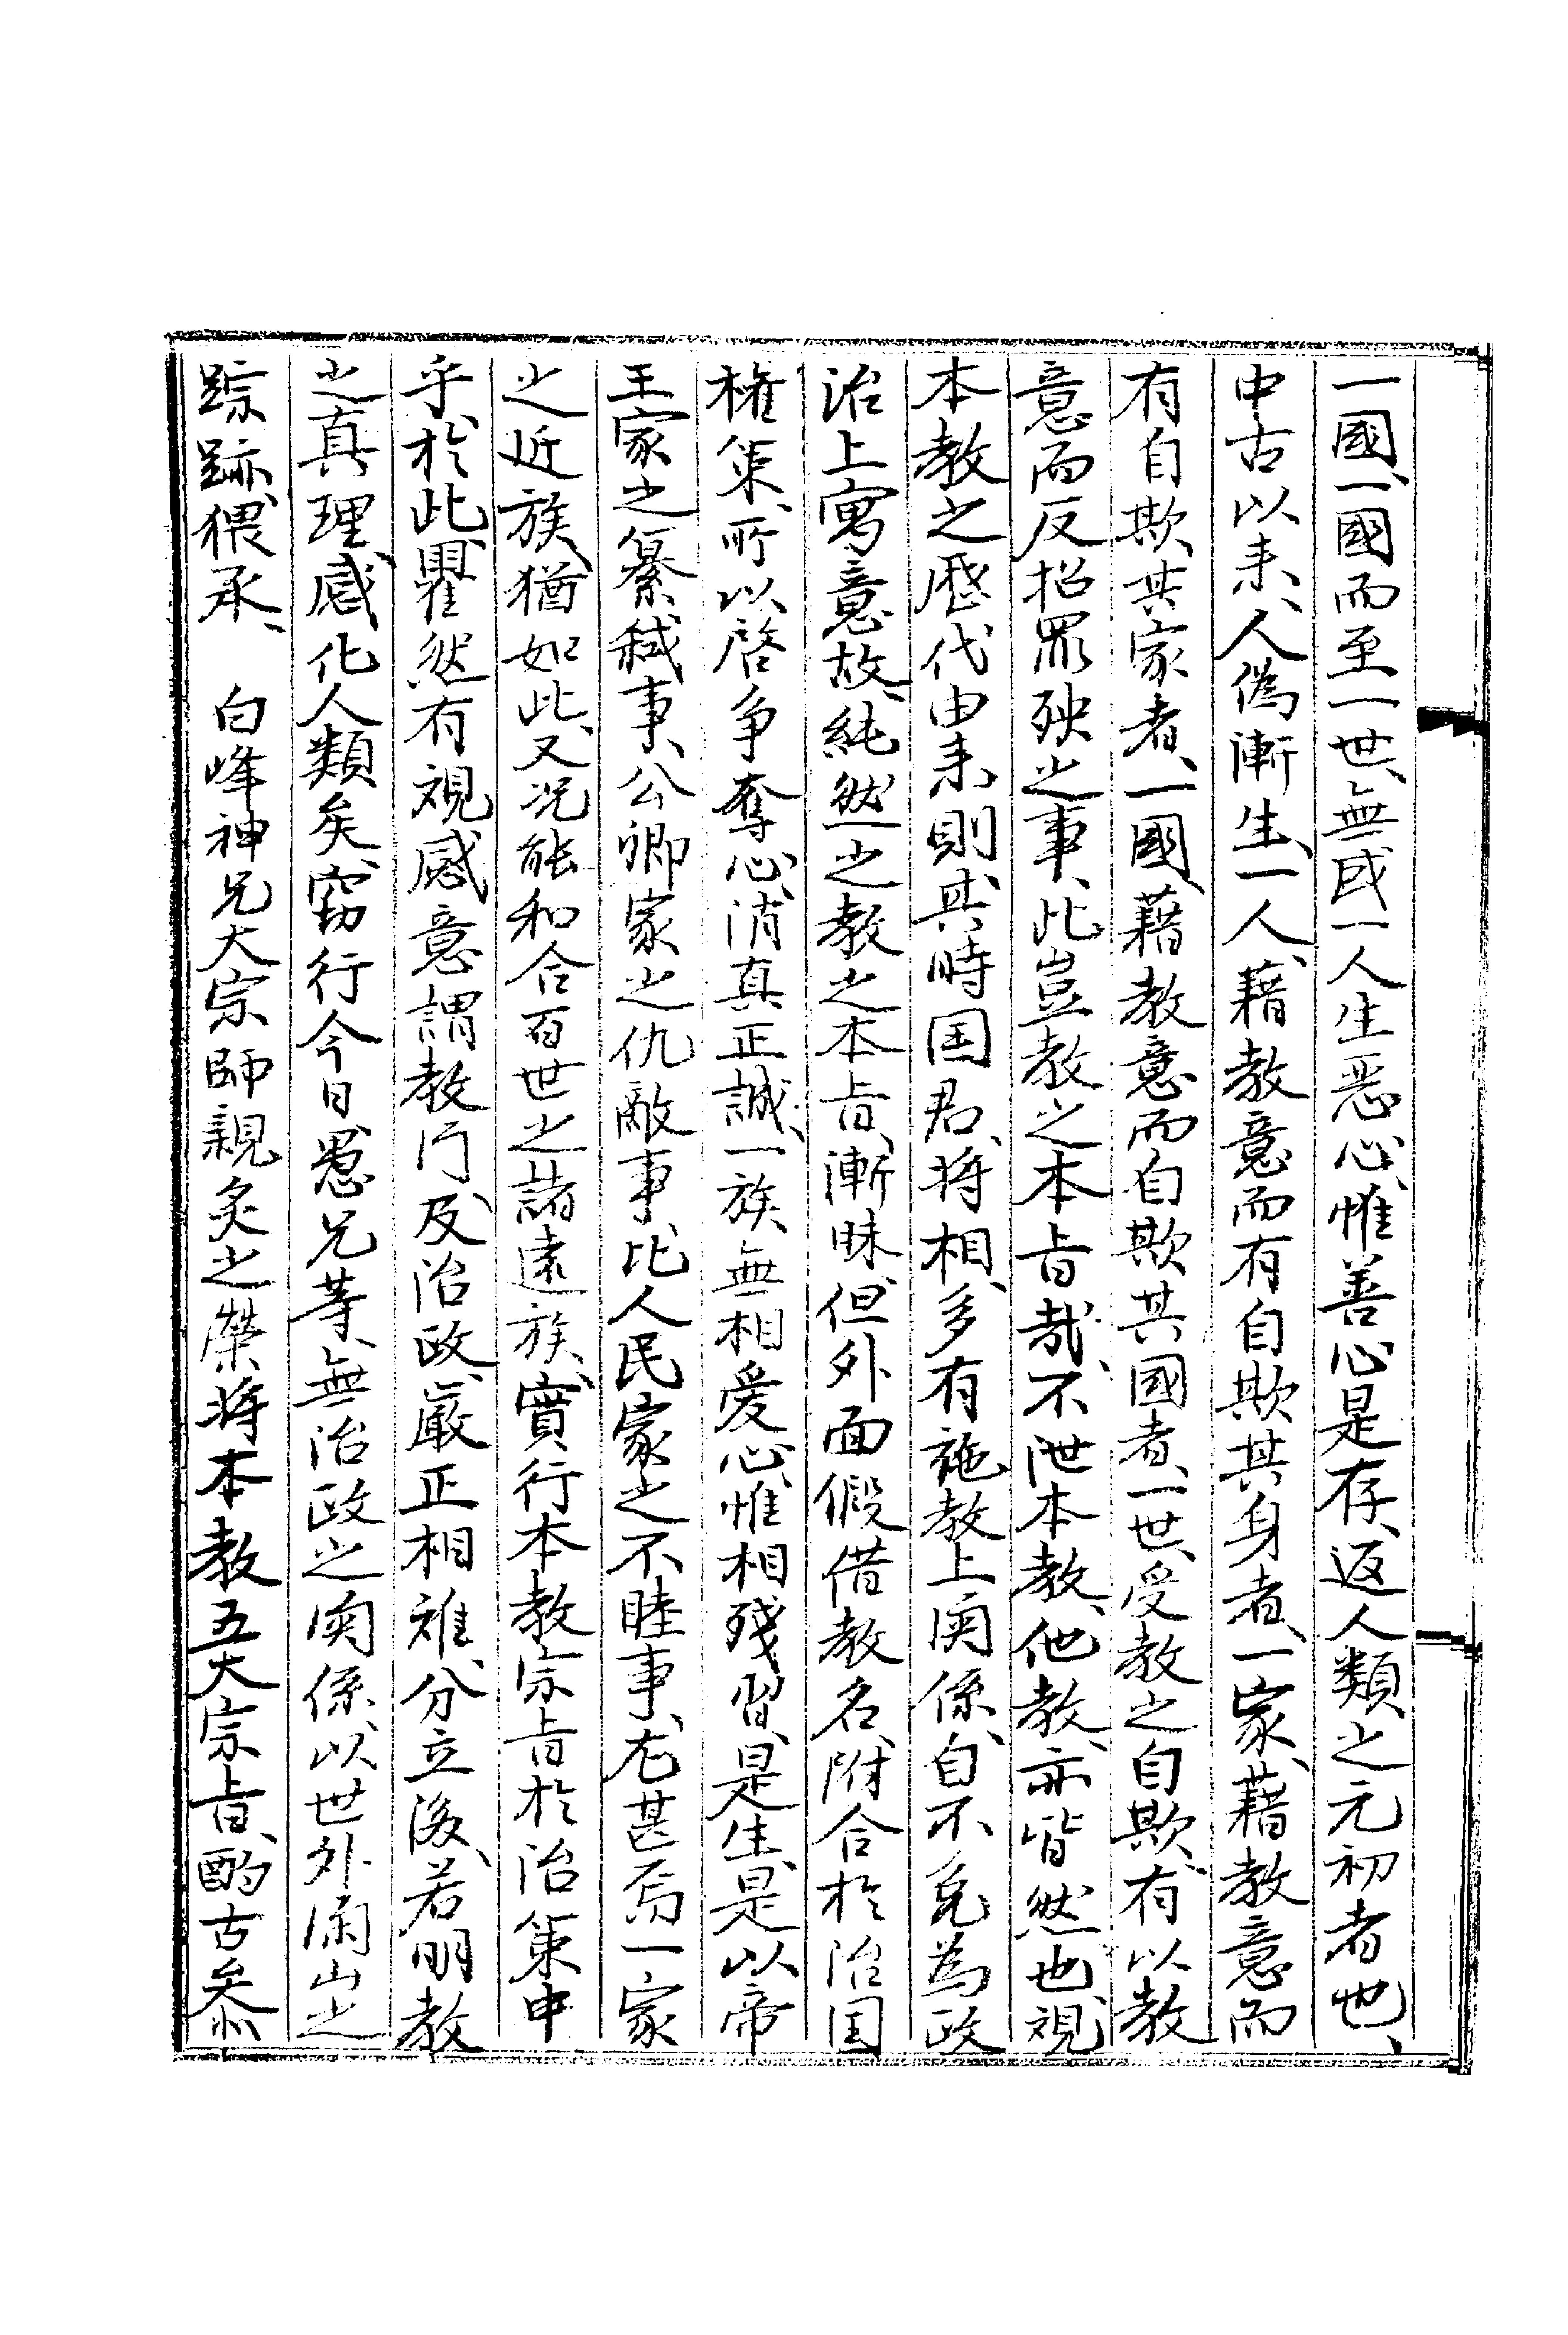 一國、一國而至一世、無或一人生惡心、惟善心是存、返人類之元初者也、
中古以来、人偽漸生、一人、藉教意而有自欺其身者、一家、藉教意而
有自欺其家者、一國、藉教意而自欺其國者、一世、受教之自欺、有以教
意而反招罪殃之事、此豈教之本旨哉、不泄本教、他教、亦皆然也、視
本教之歷代由来、則其時国君、将相、多有施教上関係、自不免為政
治上寓意故、純然之教之本旨、漸昧、但外面假借教名、附合於治国
權策、所以啓争奪心、消真正誠、一族、無相爱心、惟相殘習、是生、是以帝
王家之篡弑事、公卿家之仇敵事、比人民家之不睦事、尤甚焉一家
之近族、猶如此、又况能和合百世之諸遠族、實行本教宗旨於治策中
乎、於此、瞿然有視感意謂教門及治政、嚴正相離、分立後、若明教
之真理、感化人類矣、窃行今日、愚兄等、無治政之関係、以世外深山之
踪跡、猥承、　白峰神兄大宗師親炙之榮、将本教五大宗旨、酌古叅